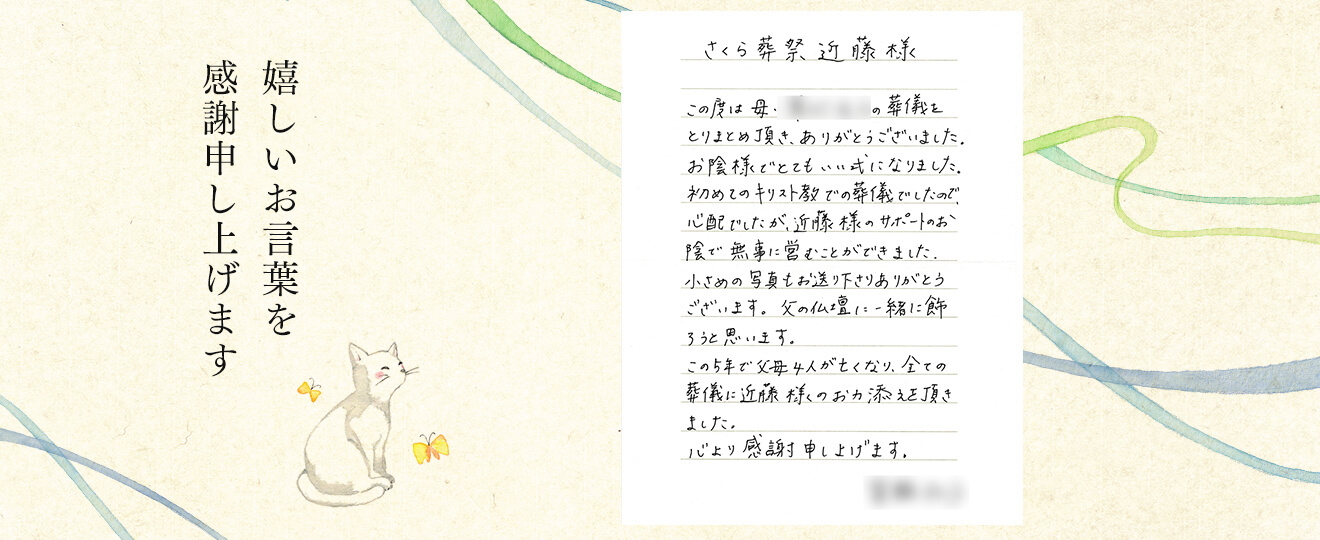 嬉しいお言葉を
感謝申し上げます
さくら葬祭 近藤様
この度は母・の葬儀を
とりまとめ頂き、ありがとうございました。
お陰様でとてもいい式になりました。
初めてのキリスト教での葬儀でしたので、
心配でしたが、近藤様のサポートのお
陰で無事に営むことができました。
小さめの写真もお送り下さりありがとう
ございます。父の仏壇に一緒に飾
ろうと思います。
この5年で父母4人が亡くなり、全ての
葬儀に近藤様のお力添えを頂き
ました。
心より感謝申し上げます。